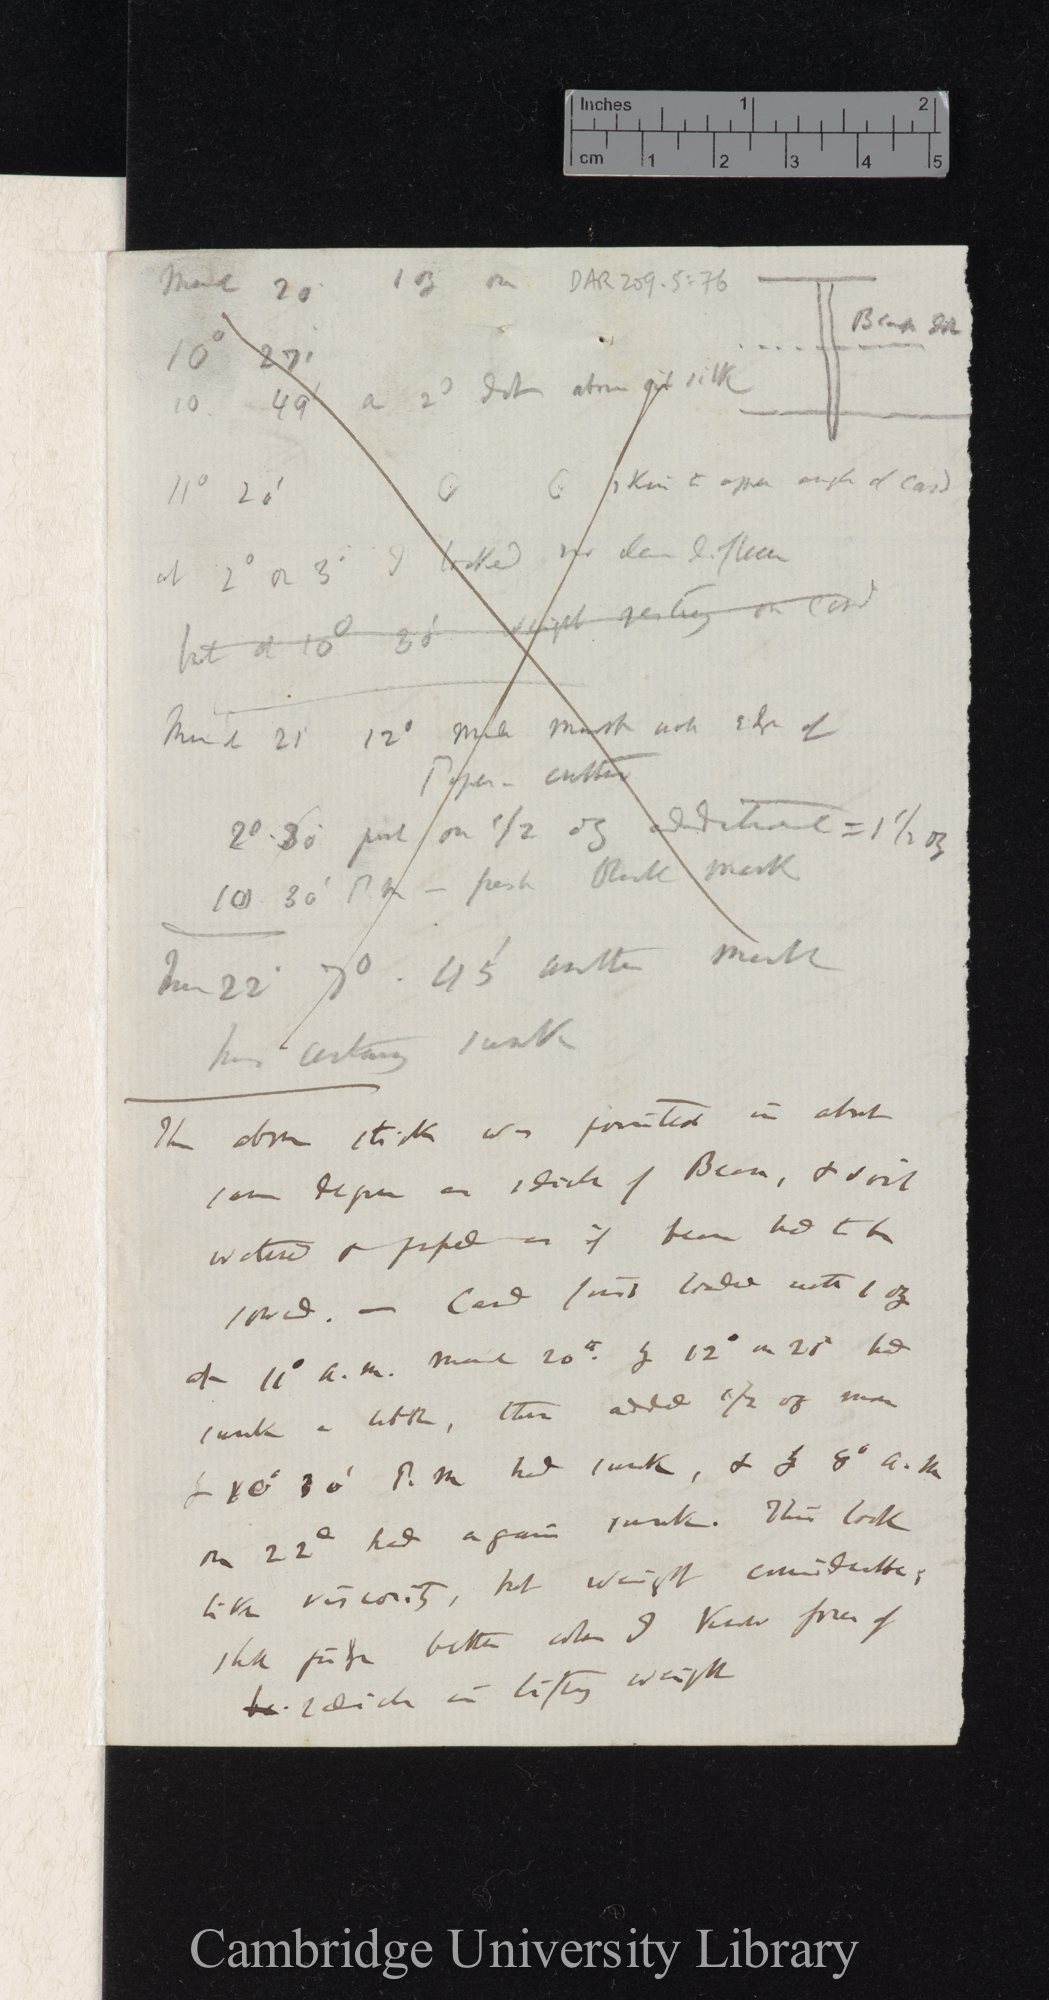 Inches 1 2
cm 1 2 3 4 5
March 20 1 oz on DAR 209.5:76
Bean
10° 27'
10 49' a 2d dot above silk
11° 20' to upper angle of Card
at 2° or 3° I looked no clear difference
but at 10° 30' weight resting on Card
March 21 12° made mark with edge of
Paper-cutter
2° 30' put on 1/2 oz additional = 1 1/2 oz
10 30' P.M — fresh black mark
22 7°. 45' another mark
has certainly sunk
The above stick was pointed in about
same degree as radicle of Bean, & soil
watered & as if bean had to be
sowed. — Card first loaded with 1 oz
at 11° a.m. March 20th. by 12° on 21 had
sunk a little, then added 1/2 oz more
& 10° 30' P.M had sunk, & by 8° a.m
on 22d had again sunk. This looks
like viscosity, but weight considerable;
shall judge better when I know force of
radicle in lifting weight
Cambridge University Library